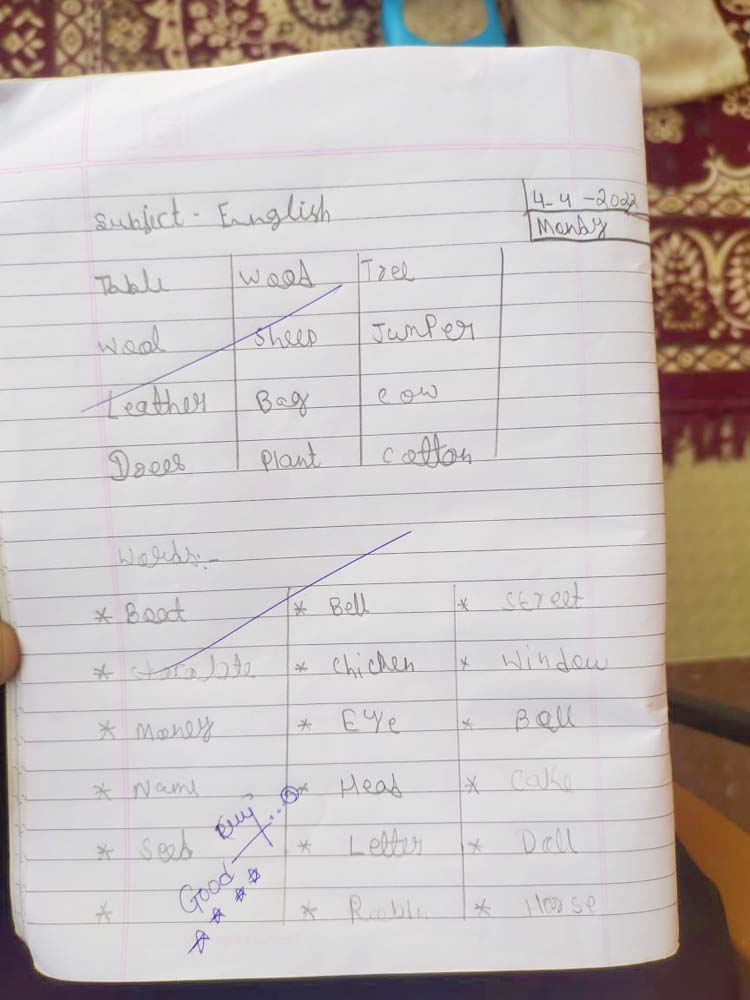 4-4-2022
Subjict - Eunglish
Monday
Table Wood Tree
Wool Sheep Jumper
Leather Bag Cow
Drees Plant Cotton
Words:-
* Boot * Bell * Street
* chocolate * Chicken * Window
* Money * Eye * Ball
* Name * Head * Cake
* Seed * Letter * Doll
* * * Horse
Good